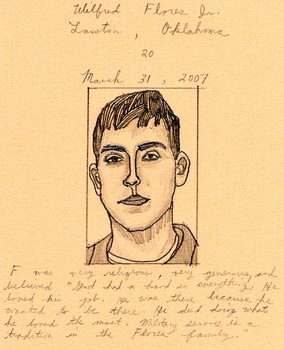 Wilfred Flores Jr.
Lawton, Oklahoma
20
March 31, 2007
F was very religious, very generous, and
believed "God had a hand in everything. He
loved his job. He was there because he
wanted to be there. He died doing what
he loved the most. Military service is a
tradition in the Flores family."